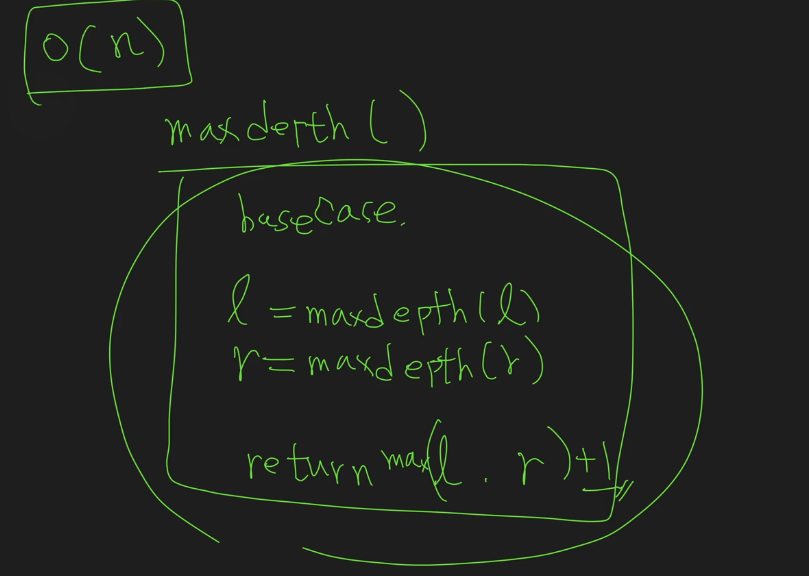 O(n)
maxdepth()
basecase.
l = maxdepth(l)
r = maxdepth(r)
return max(l . r) +1